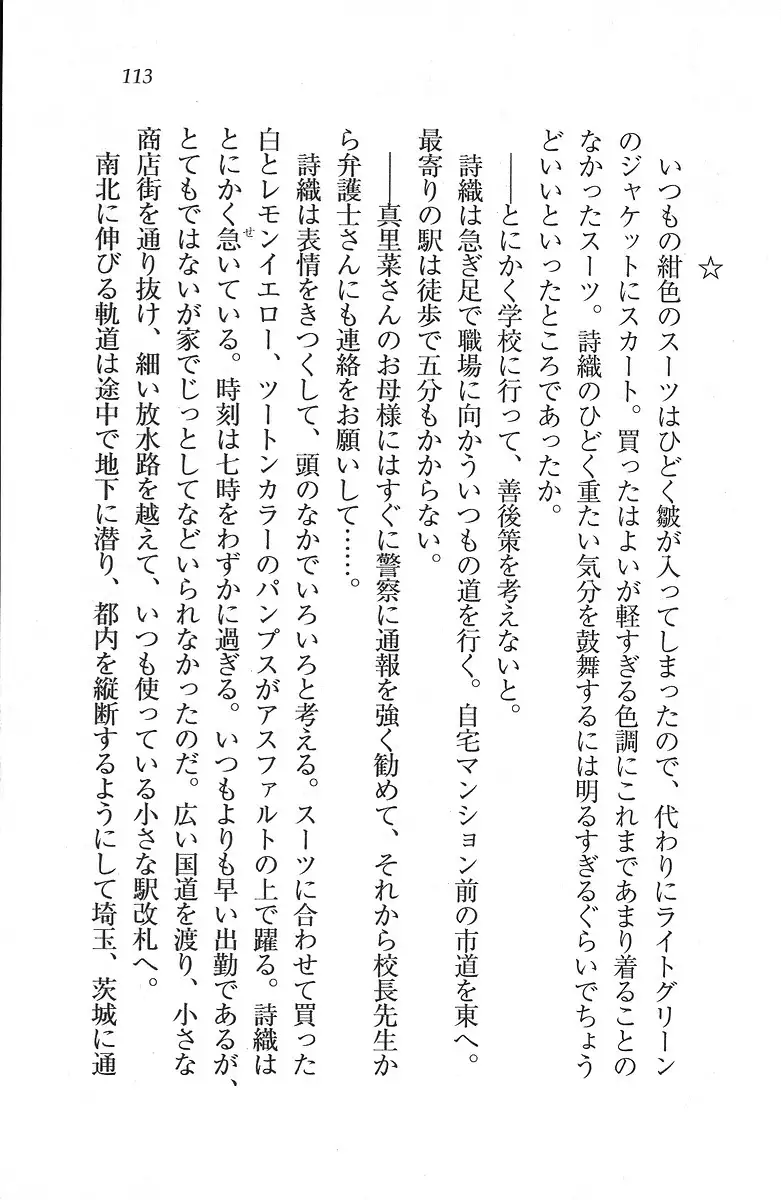 113
☆
　いつもの紺色のスーツはひどく皺が入ってしまったので、代わりにライトグリーン
のジャケットにスカート。買ったはよいが軽すぎる色調にこれまであまり着ることの
なかったスーツ。詩織のひどく重たい気分を鼓舞するには明るすぎるぐらいでちょう
どいいといったところであったか。
　――とにかく学校に行って、善後策を考えないと。
　詩織は急ぎ足で職場に向かういつもの道を行く。自宅マンション前の市道を東へ。
最寄りの駅は徒歩で五分もかからない。
　――真里菜さんのお母様にはすぐに警察に通報を強く勧めて、それから校長先生か
ら弁護士さんにも連絡をお願いして……。
　詩織は表情をきつくして、頭のなかでいろいろと考える。スーツに合わせて買った
白とレモンイエロー、ツートンカラーのパンプスがアスファルトの上で躍る。詩織は
とにかく急せいている。時刻は七時をわずかに過ぎる。いつもよりも早い出勤であるが、
とてもではないが家でじっとしてなどいられなかったのだ。広い国道を渡り、小さな
商店街を通り抜け、細い放水路を越えて、いつも使っている小さな駅改札へ。
　南北に伸びる軌道は途中で地下に潜り、都内を縦断するようにして埼玉、茨城に通